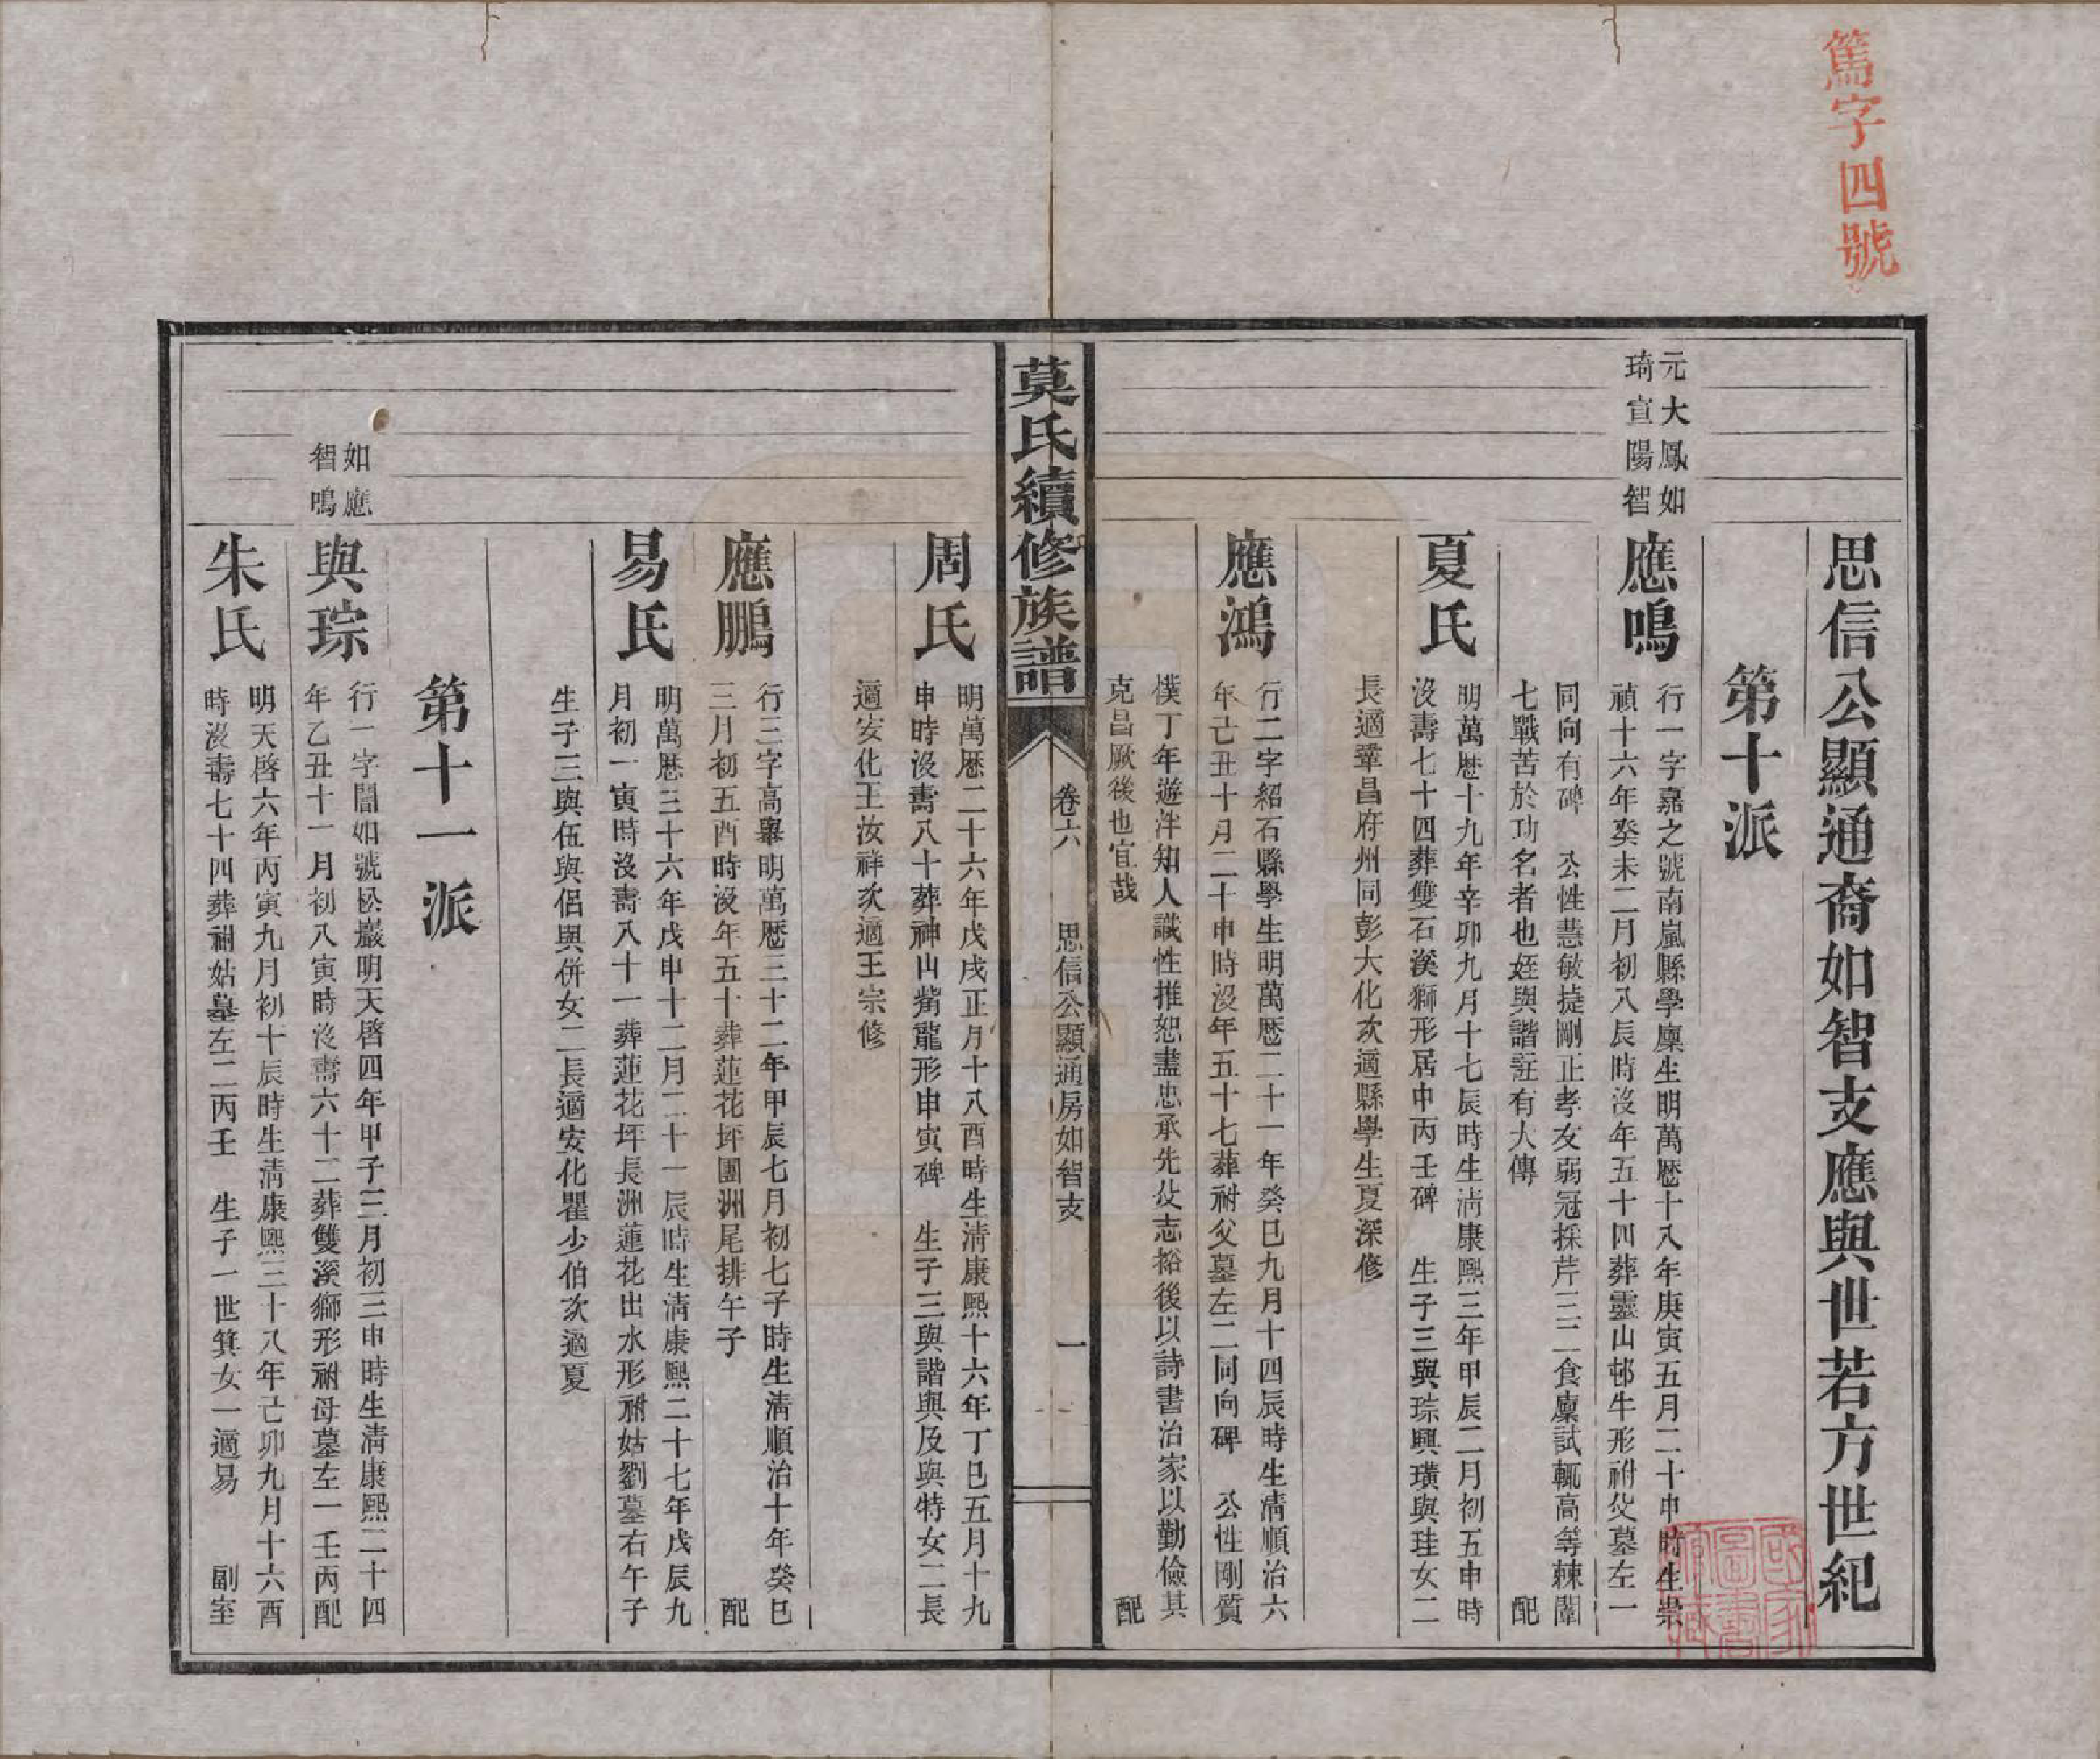 篤字四號
思信公顯通裔如智支應與世若方世紀
第十派
元大鳳如
琦宣陽智
應鳴
行一字嘉之號南嵐縣學廩生明萬歷十八年庚寅五月二十申時生崇
禎十六年癸未二月初八辰時沒年五十四葬靈山邨牛形祔父墓左一
同向有碑　公性慧敏捷剛正孝友弱冠採芹三二食廩試輒高等棘闈
七戰苦於功名者也姪與諧註有大傳　配
夏氏
明萬歷十九年辛卯九月十七辰時生淸康熙三年甲辰二月初五申時
沒壽七十四葬雙石溪獅形居中丙壬碑　生子三與琮興璜與珪女二
長適鞏昌府州同彭大化次適縣學生夏深修
應鴻
行二字紹石縣學生明萬歷二十一年癸巳九月十四辰時生淸順治六
年己丑十月二十申時沒年五十七葬祔父墓左二同向碑　公性剛質
樸丁年遊泮知人識性推恕盡忠承先父志裕後以詩書治家以勤儉其
克昌厥後也宜哉　配
莫氏續修族譜
卷六　思信公顯通房如智支　一
周氏
明萬歷二十六年戊戌正月十八酉時生淸康熙十六年丁巳五月十九
申時沒壽八十葬神山觜龍形申寅碑　生子三與諧與及與特女二長
適安化王汝祥次適王宗修
應鵬
行三字高舉明萬歷三十二年甲辰七月初七子時生淸順治十年癸巳
三月初五酉時沒年五十葬蓮花坪團洲尾排午子　配
易氏
明萬歷三十六年戊申十二月二十一辰時生淸康熙二十七年戊辰九
月初一寅時沒壽八十一葬蓮花坪長洲蓮花出水形祔姑劉墓右午子
生子三與伍與侶與併女二長適安化瞿少伯次適夏
第十一派
如應
智鳴
與琮
行一字闇如號松巖明天啓四年甲子三月初三申時生淸康熙二十四
年乙丑十一月初八寅時沒壽六十二葬雙溪獅形祔母墓左一壬丙配
朱氏
明天啓六年丙寅九月初十辰時生淸康熙三十八年己卯九月十六酉
時沒壽七十四葬祔姑墓左二丙壬　生子一世箕女一適易　副室